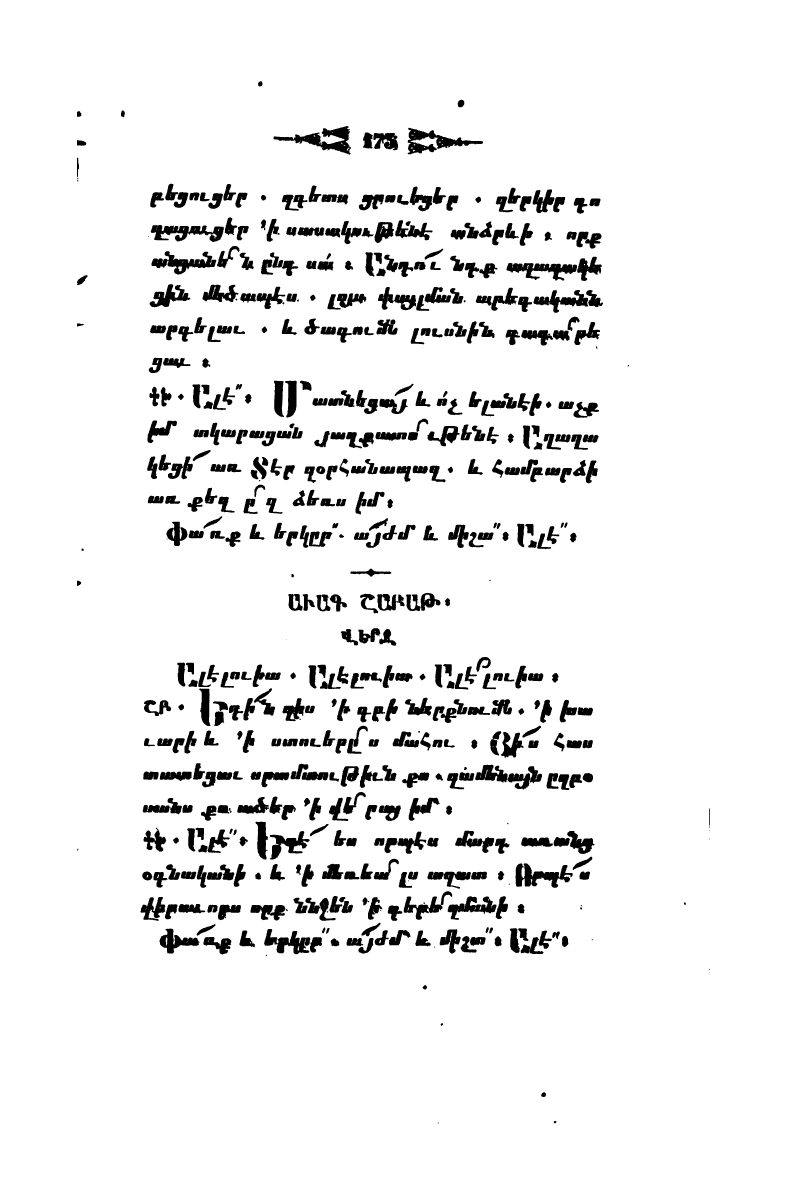 173
բեցուցեր . զգետս ցրուեցեր . զերկիր դո
ղացուցեր ՚ի սաստկութենէ անձրևի ։ որք
անցանե՜ն ընդ սա՛ ։ Ընդո՜ւ նղ.ք աղաղակե
ցին մեծապէս . լոյս փայլման արեգականն
արգելաւ . և ծագումն լուսնին գագա՜րե
ցաւ ։
ՓԽ . Ալէ՞ ։ Մատնեցա՜յ և ո՛չ ելանէի . աչք
իմ տկարացան յաղքատո՜ւթենէ ։ Աղաղա
կեցի՜ առ Տէր զօրհանապազ . և համբարձի
առ քեզ ը՜զ ձեռս իմ ։
Փա՜ռք և երկրր՞ . ա՜յժմ և միշտ՞ ։ Ալէ՞ ։
ԱՒԱԳ ՇԱԲԱԹ ։
ՎԵՐՋ
Ալէլուիա . Ալէլուիա . Ալէ՜լուիա ։
ՇԲ . Եդի՜ն զիս ՚ի գբի ներքնումն . ՚ի խա
ւարի և ՚ի ստուերը՜ս մահու ։ Յի՜ս հաս
տատեցաւ սրտմտութիւն քո . զամենայն ըղձ
տանս քո ածեր ՚ի վե՜րայ իմ ։
ՓԽ . Ալէ՞ ։ Եղէ՜ ես որպէս մարդ առանց
օգնականի . և ՚ի մեռեա՜լս ազատ ։ Որպէ՜ս
վիրաւորս որք ննջեն ՚ի գերե՜զմանի ։
Փա՜ռք և երկրր՞ . ա՜յժմ և միշտ՞ ։ Ալէ՞ ։